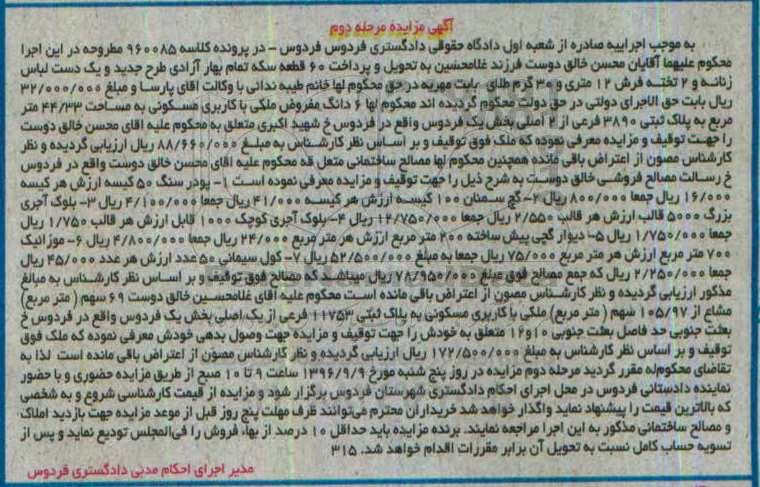 آگهی مزایده مرحله دوم
به موجب اجراییه صادره از شعبه اول دادگاه حقوقی دادگستری فردوس فردوس - در پرونده کلاسه ۹۶۰۰۸۵ مطروحه در این اجرا
محکوم علیهما آقایان محسن خالق دوست فرزند غلامحسین به تحویل و پرداخت ۶۰ قطعه سکه تمام بهار آزادی طرح جدید و یک دست لباس
زنانه و ۲ تخته فرش ۱۲ متری و ۳۰ گرم طلای بابت مهریه در حق محکوم لها خانم طیبه ندائی با وکالت اقای پارسا و مبلغ ۳۲/۰۰۰/۰۰۰
ریال بابت حق الاجرای دولتی در حق دولت محکوم گردیده اند محکوم لها ۶ دانگ مفروض ملکی با کاربری مسکونی به مساحت ۴۴/۳۳ متر
مربع به پلاک ثبتی ۳۸۹۰ فرعی از ۲ اصلی بخش یک فردوس واقع در فردوس خ شهید اکبری متعلق به محکوم علیه اقای محسن خالق دوست
را جهت توقیف و مزایده معرفی نموده که ملک فوق توقیف و بر اساس نظر کارشناس به مبلغ ۸۸/۶۶۰/۰۰۰ ریال ارزیابی گردیده و نظر
کارشناس مصون از اعتراض باقی مانده همچنین محکوم لها مصالح ساختمانی متعل قه محکوم علیه اقای محسن خالق دوست واقع در فردوس
خ رسالت مصالح فروشی خالق دوست به شرح ذیل را جهت توقیف و مزایده معرفی نموده است ۱- پودر سنگ ۵۰ کیسه ارزش هر کیسه
۱۶/۰۰۰ ریال جمعا ۸۰۰/۰۰۰ ریال ۲- گچ سمنان ۱۰۰ کیسه ارزش هر کیسه ۴۱/۰۰۰ ریال جمعا ۴/۱۰۰/۰۰۰ ریال ۳- بلوک آجری
بزرگ ۵۰۰۰ قالب ارزش هر قالب ۲/۵۵۰ ریال جمعا ۱۲/۷۵۰/۰۰۰ ریال ۴- بلوک آجری کوچک ۱۰۰۰ قابل ارزش هر قالب ۱/۷۵۰ ریال
جمعا ۱/۷۵۰/۰۰۰ ریال ۵- دیوار گچی پیش ساخته ۲۰۰ متر مربع ارزش هر متر مربع ۲۴/۰۰۰ ریال جمعا ۴/۸۰۰/۰۰۰ ریال ۶- موزائیک
۷۰۰ متر مربع ارزش هر متر مربع ۷۵/۰۰۰ ریال جمعا به مبلغ ۵۲/۵۰۰/۰۰۰ ریال ۷- کول سیمانی ۵۰ عدد ارزش هر عدد ۴۵/۰۰۰ ریال
جمعا ۲/۲۵۰/۰۰۰ ریال که جمع مصالح فوق مبلغ ۷۸/۹۵۰/۰۰۰ ریال میباشد که مصالح فوق توقیف و بر اساس نظر کارشناس به مبالغ
مذکور ارزیابی گردیده و نظر کارشناس مصون از اعتراض باقی مانده است محکوم علیه آقای غلامحسین خالق دوست ۶۹ سهم (متر مربع)
مشاع از ۱۰۵/۹۷ سهم (متر مربع) ملکی با کاربری مسکونی به پلاک ثبتی ۱۱۷۵۳ فرعی از یک اصلی بخش یک فردوس واقع در فردوس خ
بعثت جنوبی حد فاصل بعثت جنوبی ۱۰و۱۲ متعلق به خودش را جهت توقیف و مزایده جهت وصول بدهی خودش معرفی نموده که ملک فوق
توقیف و بر اساس نظر کارشناس به مبلغ ۱۷۲/۵۰۰/۰۰۰ ریال ارزیابی گردیده و نظر کارشناس مصون از اعتراض باقی مانده است لذا به
تقاضای محکوم‌له مقرر گردید مرحله دوم مزایده در روز پنج شنبه مورخ ۱۳۹۶/۹/۹ ساعت ۹ تا ۱۰ صبح از طریق مزایده حضوری و با حضور
نماینده دادستانی فردوس در محل اجرای احکام دادگستری شهرستان فردوس برگزار شود و مزایده از قیمت کارشناسی شروع و به شخصی
که بالاترین قیمت را پیشنهاد نماید واگذار خواهد شد خریداران محترم می‌توانند ظرف مهلت پنج روز قبل از موعد مزایده جهت بازدید املاک
و مصالح ساختمانی مذکور به این اجرا مراجعه نمایند. برنده مزایده باید حداقل ۱۰ درصد از بهاء فروش را فی‌المجلس تودیع نماید و پس از
تسویه حساب کامل نسبت به تحویل آن برابر مقررات اقدام خواهد شد. ۳۱۵
مدیر اجرای احکام مدنی دادگستری فردوس